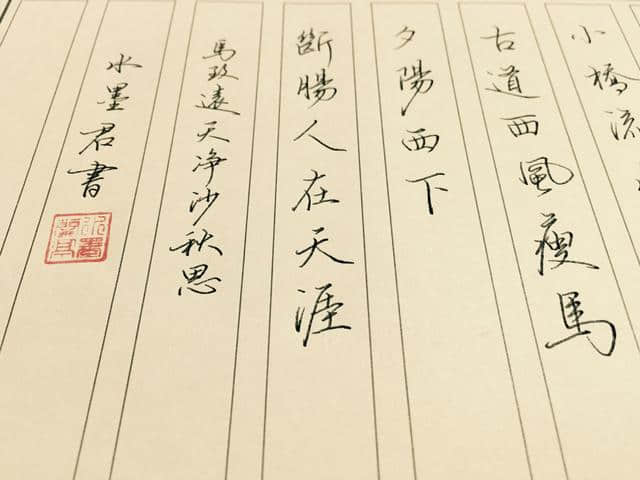 小橋流
古道西風瘦馬
夕陽西下
斷腸人在天涯
馬致遠天净沙秋思
水墨君書